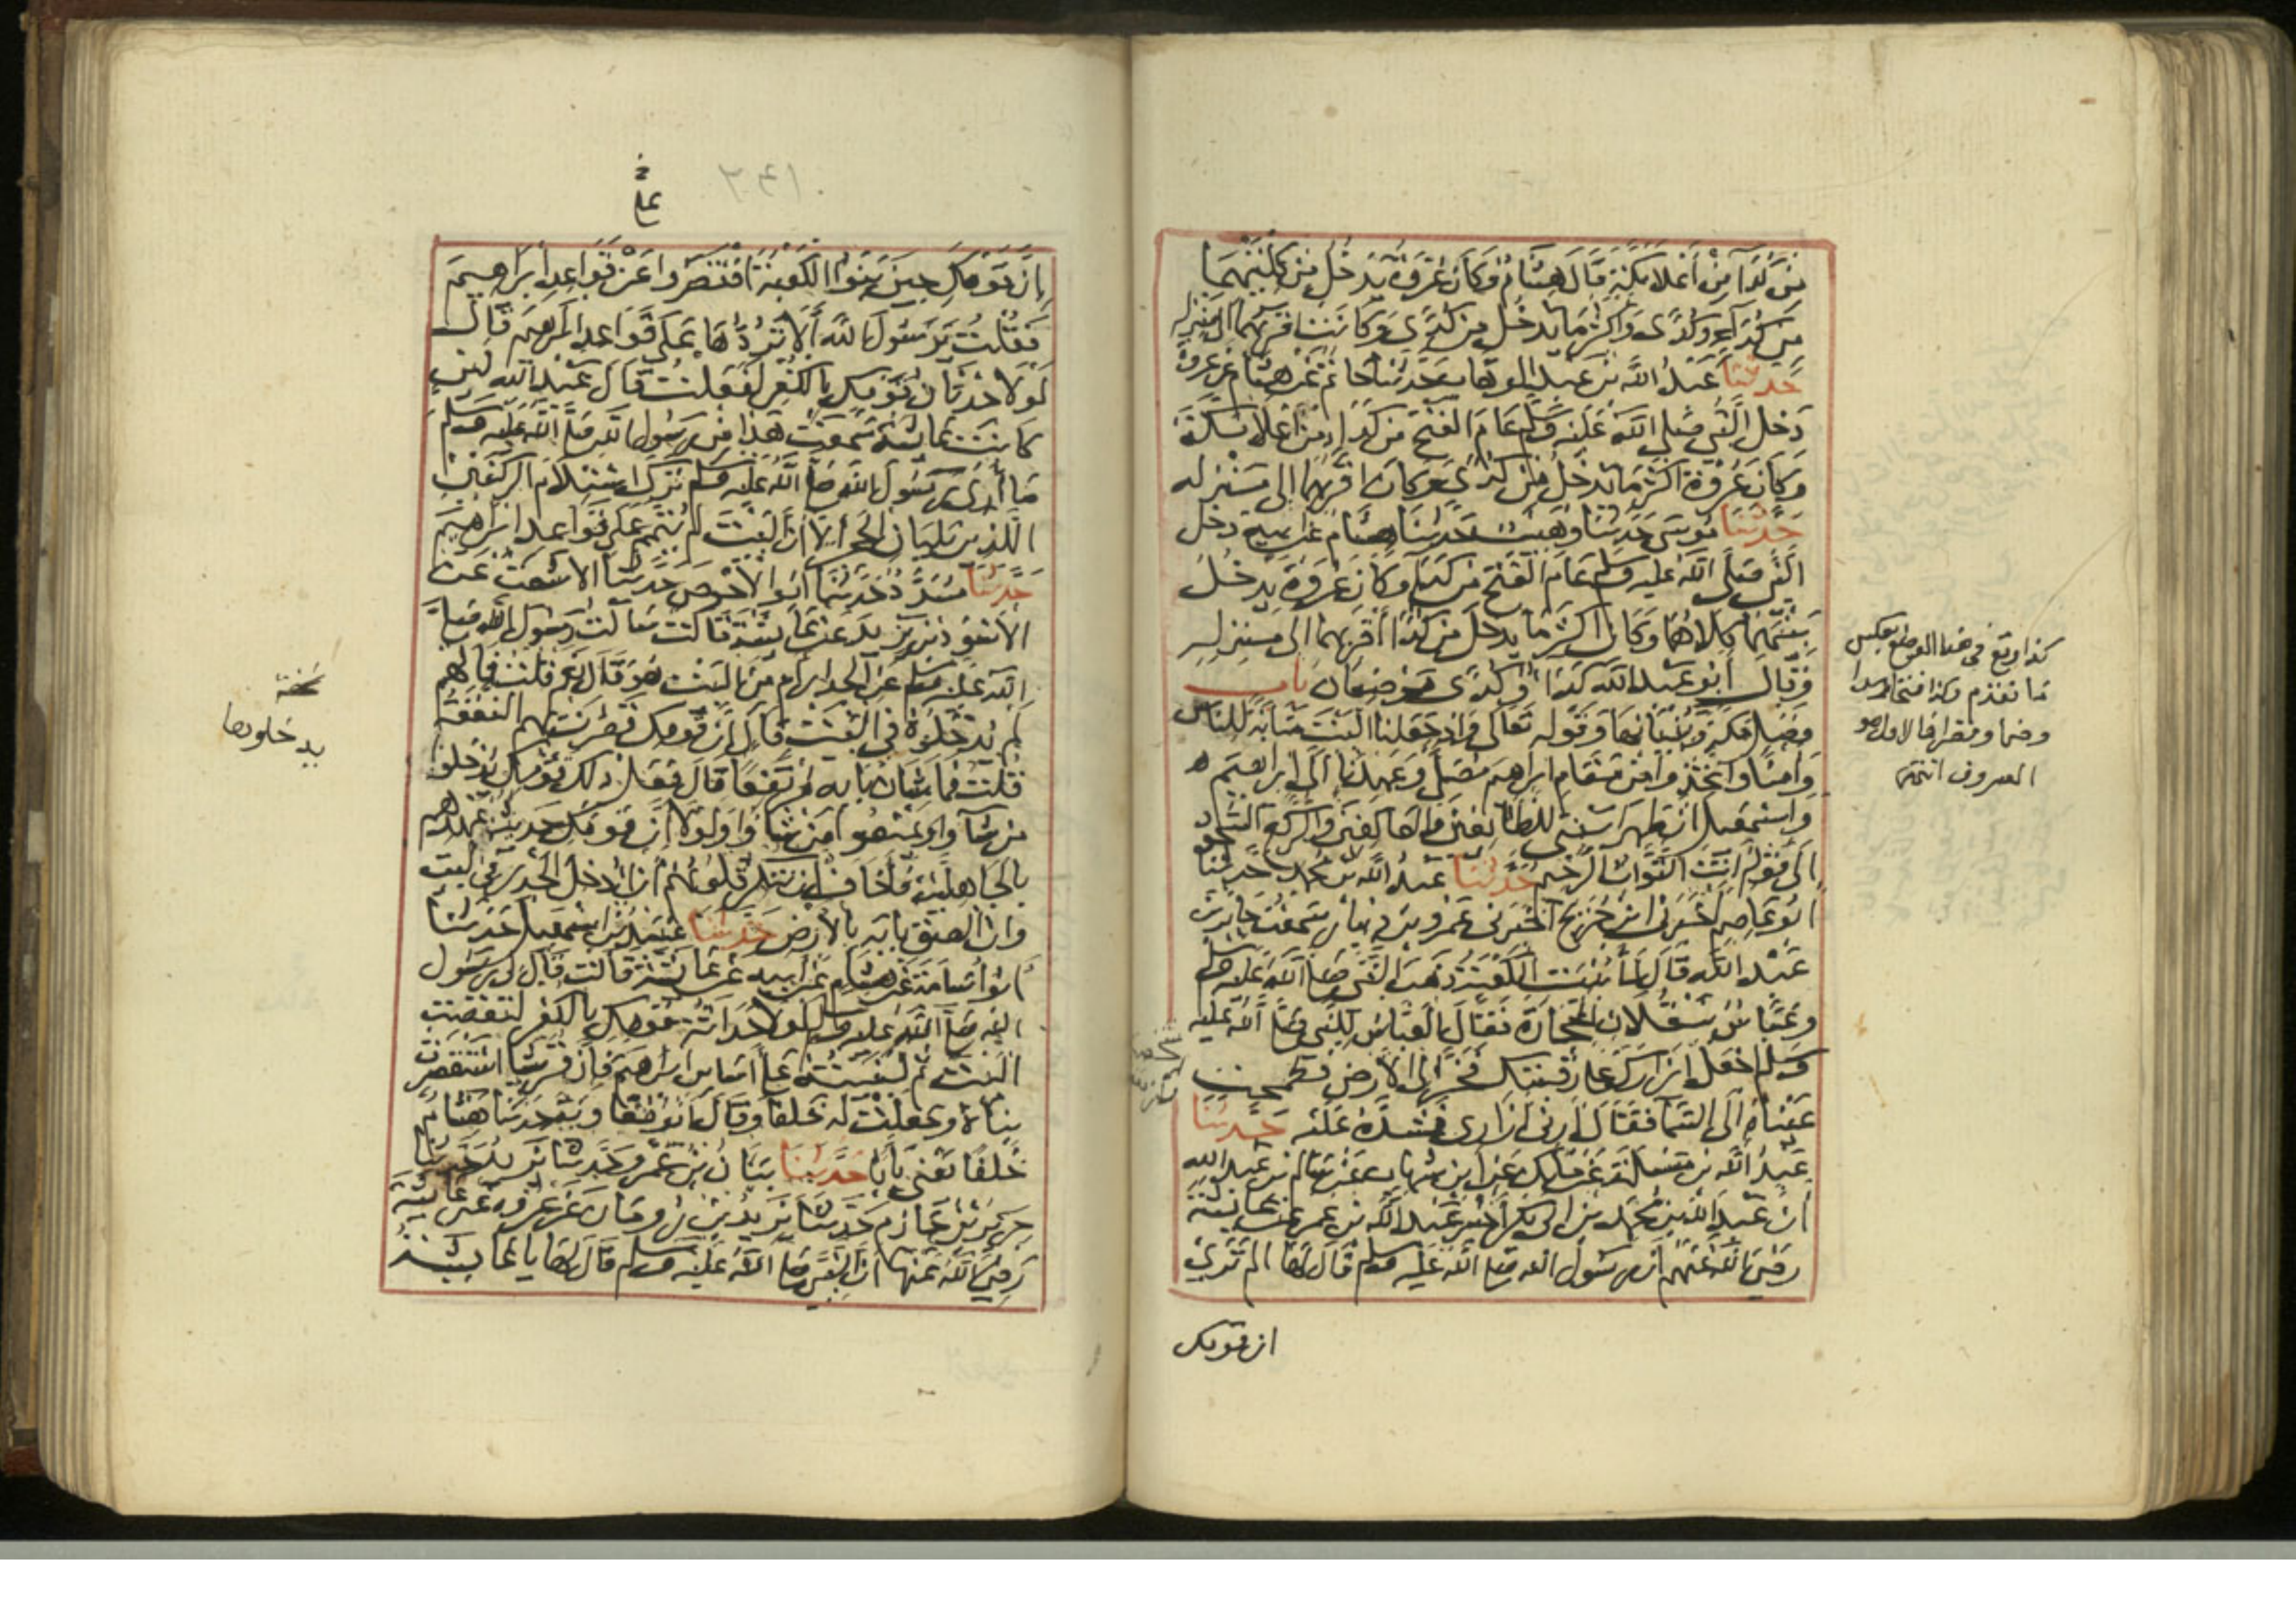 من كدا من أعلا مكة قال هشام وكان عروة يدخل من كلتيهما
من كداء وكدى واكثر ما يدخل من كدى وكانت اقربهما الى منزله
حدثنا عبد الله بن عبد الوهاب حدثنا حاتم عن هشام عن عروة
دخل النبي صلى الله عليه وسلم عام الفتح من كداء من أعلا مكة
وكان عروة اكثر ما يدخل من كدى وكان اقربهما الى منزله
حدثنا موسى حدثنا وهيب حدثنا هشام عن ابيه دخل
النبي صلى الله عليه وسلم عام الفتح من كداء وكان عروة يدخل
منهما كلاهما وكان اكثر ما يدخل من كدا أقربهما الى منزله
وقال أبو عبد الله كداء وكدى موضعان باب
فضل مكة وبنيانها وقوله تعالى واذ جعلنا البيت مثابة للناس
وامنا واتخذوا من مقام ابراهيم مصلى وعهدنا الى ابراهيم
واسمعيل ان طهرا بيتي للطائفين والعاكفين والركع السجود
الى قوله انت التواب الرحيم حدثنا عبد الله بن محمد حدثنا
ابو عاصم اخبرني ابن جريج اخبرني عمرو بن دينار سمعت جابر بن
عبد الله قال لما بنيت الكعبة ذهب النبي صلى الله عليه وسلم
وعباس ينقلان الحجارة فقال العباس للنبي صلى الله عليه
وسلم اجعل ازارك على رقبتك فخر الى الارض فطمحت
عيناه الى السما فقال ارني ازاري فشده عليه حدثنا
عبد الله بن مسلمة عن مالك عن ابن شهاب عن سالم بن عبد الله
ان عبد الله بن محمد بن ابي بكر اخبر عبد الله بن عمر عن عائشة
رضي الله عنهم ان رسول الله صلى الله عليه وسلم قال لها الم تري
ان قومك
كذا وقع في هذا الموضع بعكس
ما تقدم
انتهى
ان قومك حين بنوا الكعبة اقتصروا عن قواعد ابراهيم
فقلت يرسول الله ألا تردها على قواعد ابرهيم قال
لولا حدثان قومك بالكفر لفعلت قال عبد الله لئن
كانت عائشة سمعت هذا من رسول الله صلى الله عليه وسلم
ما أرى رسول الله صلى الله عليه وسلم ترك استلام الركنين
اللذين يليان الحجر إلا أن البيت لم يتمم على قواعد ابراهيم
حدثنا مسدد حدثنا ابو الاحوص حدثنا الاشعث عن
الاسود بن يزيد عن عائشة قالت سألت رسول الله صلى
الله عليه وسلم عن الجدار أم من البيت هو قال نعم قلت فما لهم
لم يدخلوه في البيت قال ان قومك قصرت بهم النفقة
قلت فما شان بابه مرتفعا قال فعل ذلك قومك ليدخلوا
من شاوا ويمنعوا من شاوا ولولا ان قومك حديث عهدهم
بالجاهلية فأخاف ان تنكر قلوبهم ان ادخل الجدر في البيت
وان الصق بابه بالارض حدثنا عبيد بن اسمعيل حدثنا
ابو اسامة عن هشام عن ابيه عن عائشة قالت قال لي رسول
الله صلى الله عليه وسلم لولا حداثة قومك بالكفر لنقضت
البيت ثم لبنيته على أساس ابرهيم فإن قريشا استقصرت
بناه وجعلت له خلفا وقال ابو معاوية حدثنا هشام
خلفا يعني بابا حدثنا بيان بن عمرو حدثنا يزيد حدثنا
جرير بن حازم حدثنا يزيد بن رومان عن عروة عن عائشة
رضي الله عنها ان النبي صلى الله عليه وسلم قال لها يا عائشة
نسخة
يدخلوها